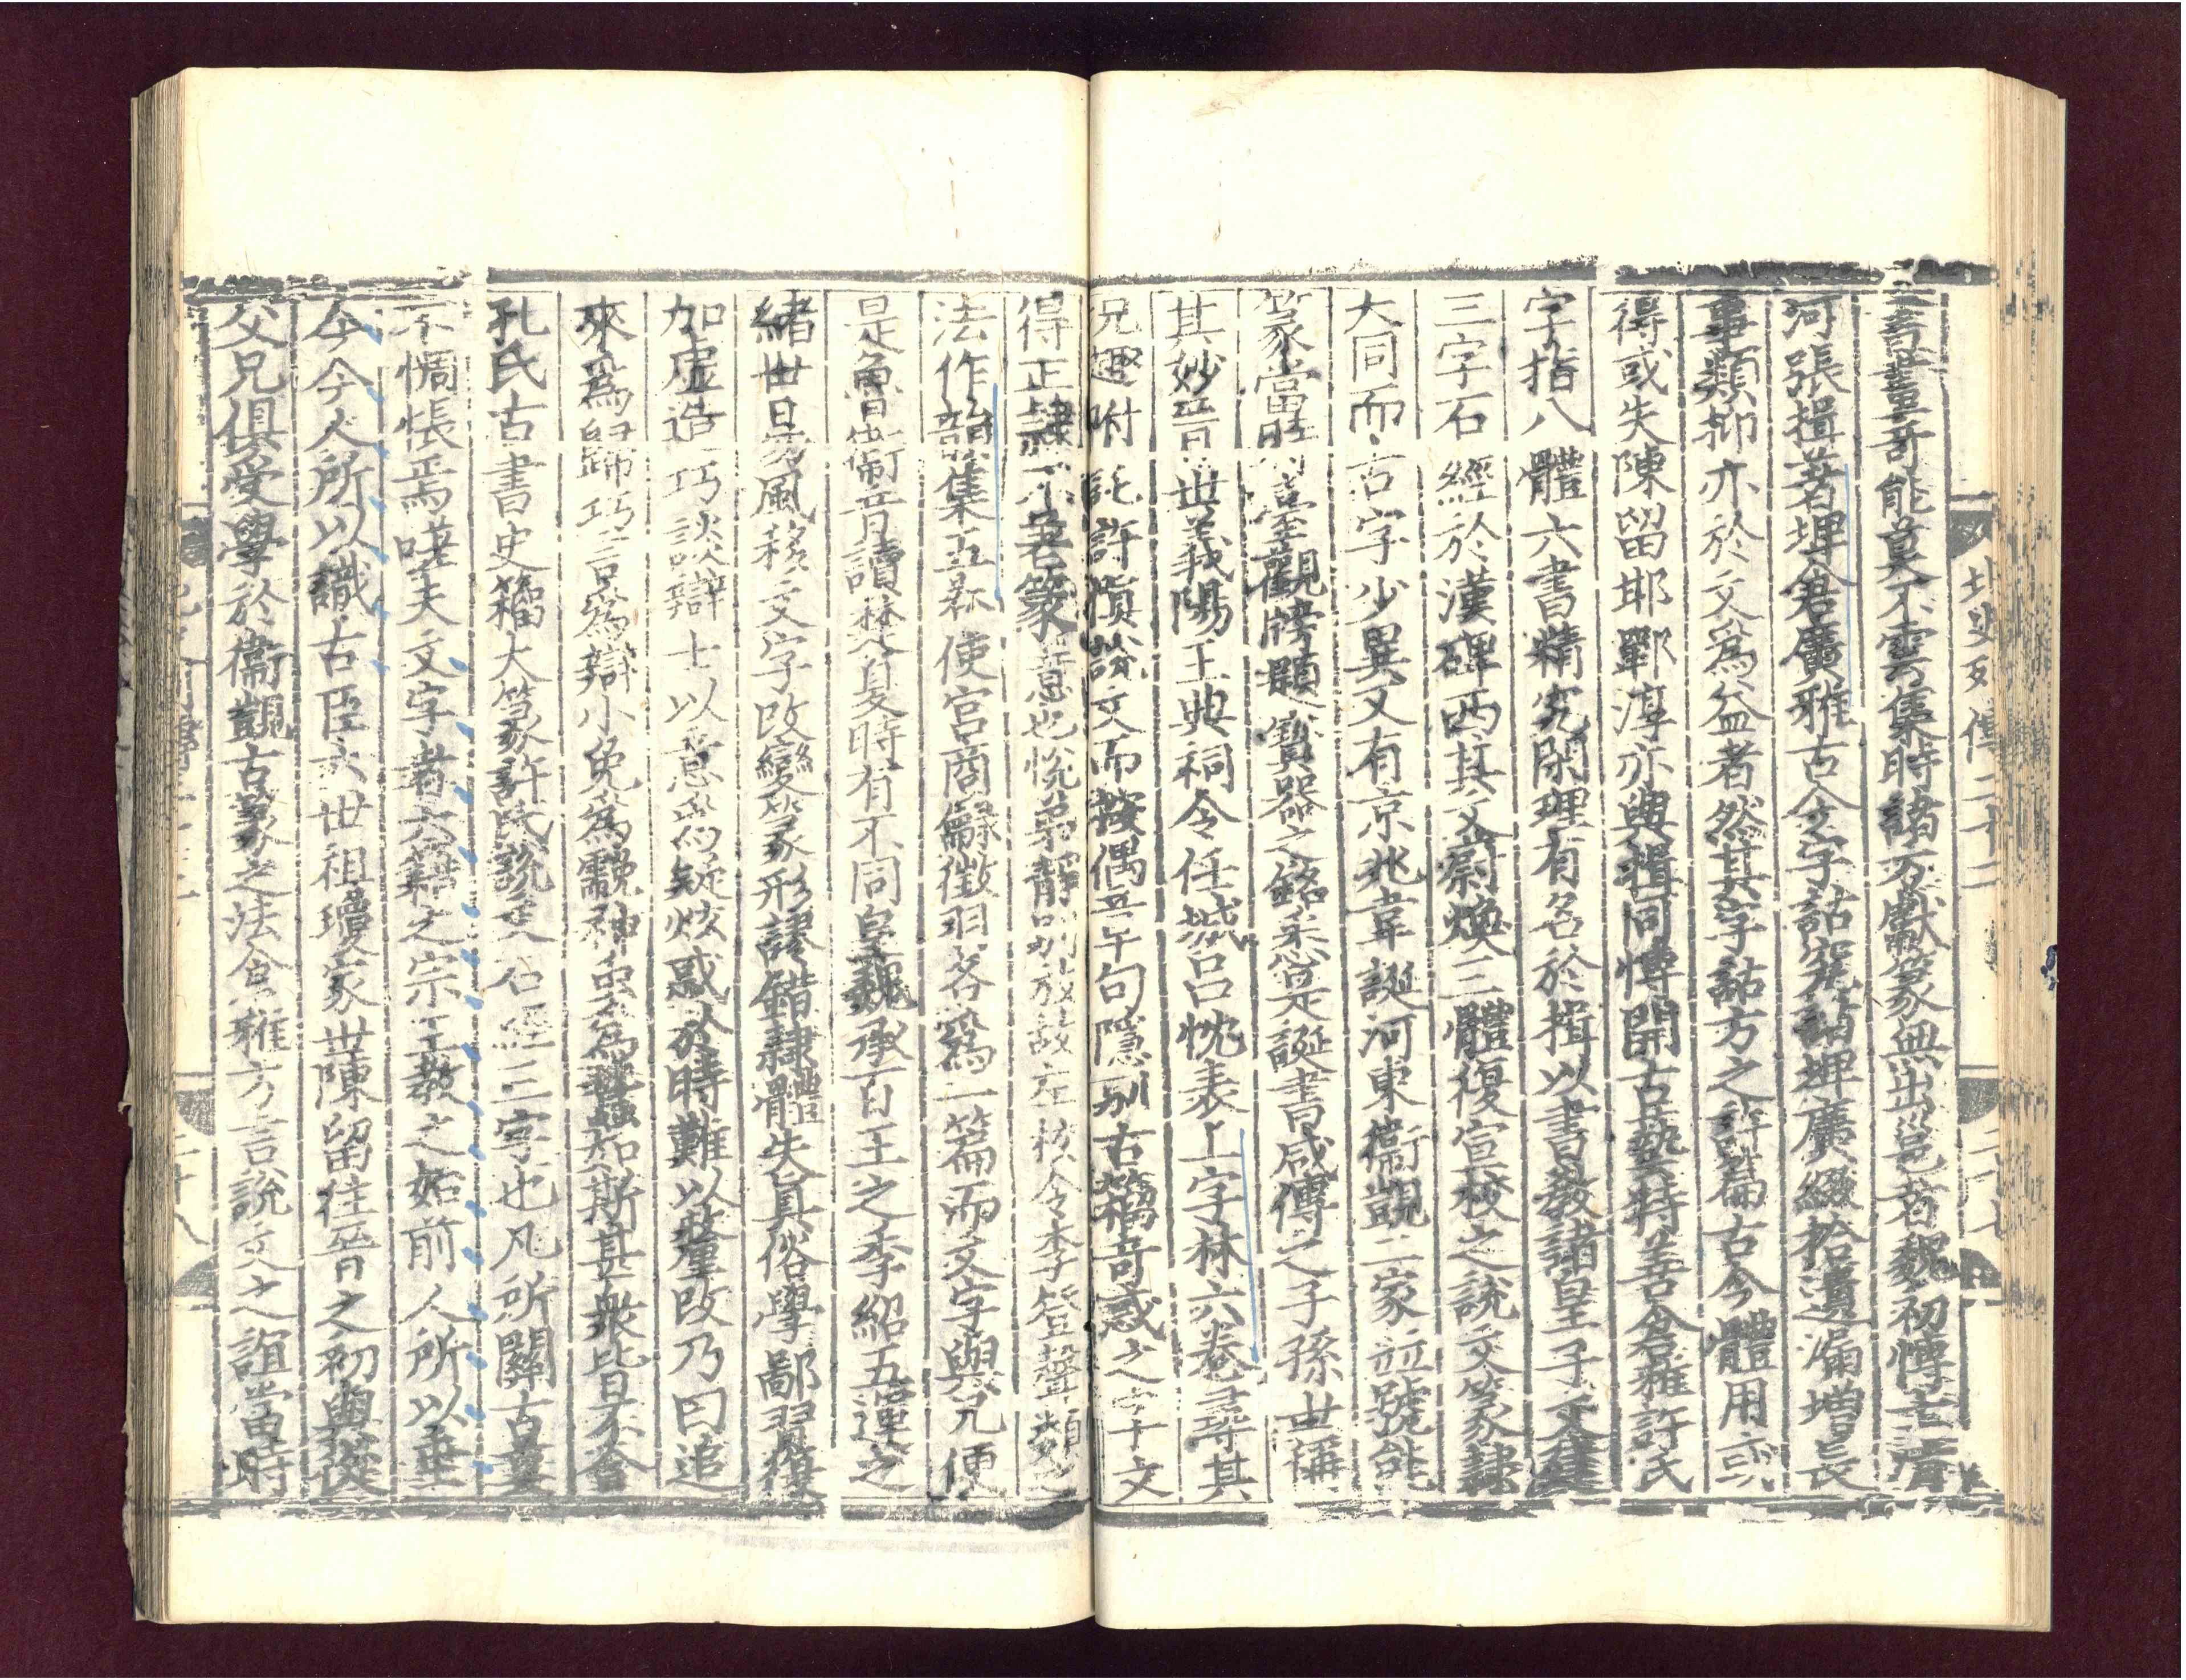 書畫奇能莫不雲集時諸方獻篆無出邕者魏初博士清
河張揖著埤倉廣雅古今字詁究諸埤廣綴拾遺漏增長
事類抑亦於文爲益者然其字詁方之許篇古今體用或
得或失陳留邯鄲淳亦與揖同博開古藝特善倉雅許氏
字指八體六書精究閑理有名於揖以書敎諸皇子又建
三字石經於漢碑西其文蔚煥三體復宣校之說文篆隸
大同而古字少異又有京兆韋誕河東衞覬二家並號能
篆當時臺觀牓題寶器之銘悉是誕書咸傳之子孫世稱
其妙晉世義陽王典祠令任城呂忱表上字林六卷尋其
況趣附託許愼說文而按偶章句隱別古籀奇惑之字文
得正隸不差篆意也忱弟靜別放故左校令李登聲類之
法作韻集五卷使宮商龣徵羽各爲一篇而文字與兄便
是魯衞音讀楚夏時有不同皇魏承百王之季紹五運之
緒世易風移文字改變篆形謬錯隸體失眞俗學鄙習復
加虛造巧談辯士以意爲疑炫惑於時難以釐改乃曰追
來爲歸巧言爲辯小兔爲䨲神虫爲蠶如斯甚衆皆不會
孔氏古書史籀大篆許氏說文石經三字也凡所關古莫
不惆悵焉嗟夫文字者六藉之宗王敎之始前人所以垂
今今人所以識古臣六世祖瓊家世陳留往晉之初與從
父兄俱受學於衞覬古篆之法倉雅方言說文之誼當時
北史列傳二十二
二十七
二十八